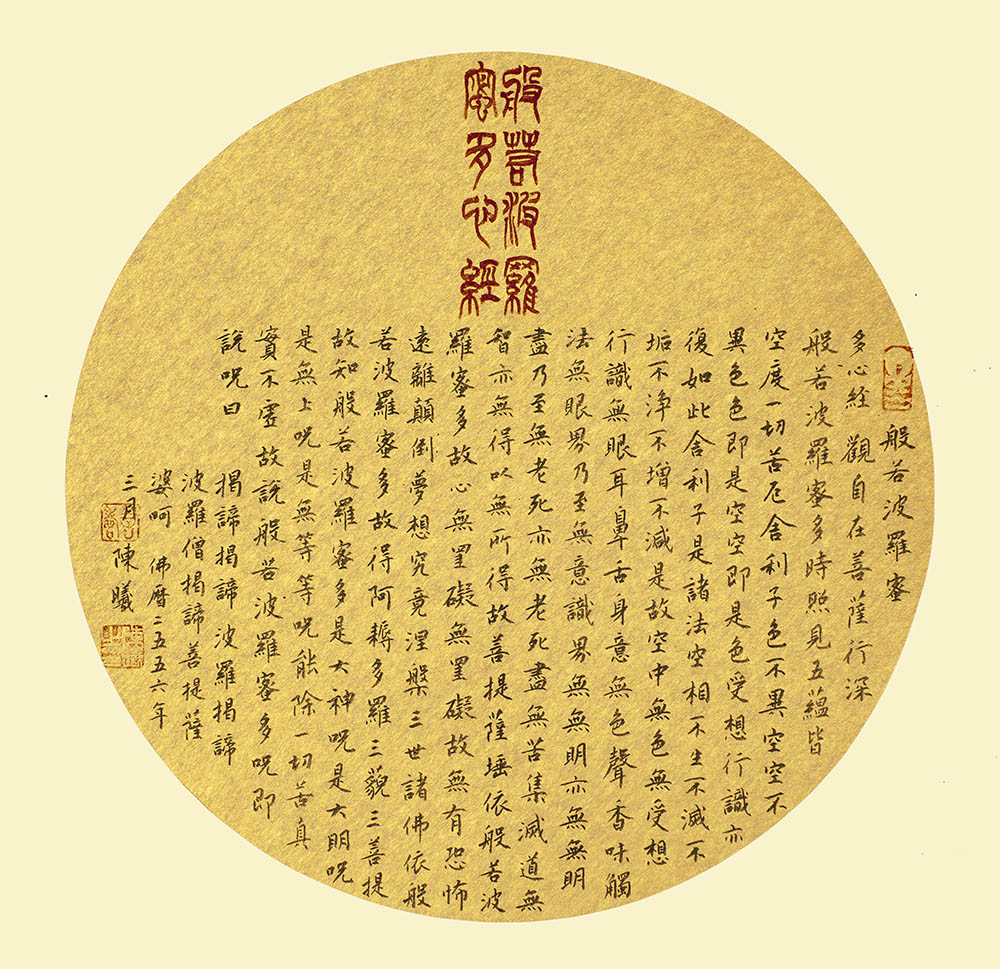 般若波羅
蜜多心經
般若波羅蜜
多心経 觀自在菩薩行深
般若波羅蜜多時照見五蘊皆
空度一切苦厄舍利子色不異空空不
異色色即是空空即是色受想行識亦
復如此舍利子是諸法空相不生不滅不
垢不浄不增不減是故空中無色無受想
行識無眼耳鼻舌身意無色聲香味觸
法無眼界乃至無意識界無無明亦無無明
盡乃至無老死亦無老死盡無苦集滅道無
智亦無得以無所得故菩提薩埵依般若波
羅蜜多故心無罣礙無罣礙故無有恐怖
遠離顛倒夢想究竟涅槃三世諸佛依般
若波羅蜜多故得阿耨多羅三藐三菩提
故知般若波羅蜜多是大神呪是大明呪
是無上呪是無等等呪能除一切苦真
實不虛故說般若波羅蜜多呪即
說呪曰 揭諦揭諦波羅揭諦
波羅僧揭諦菩提薩
婆呵 佛曆二五五六年
三月 陳曦